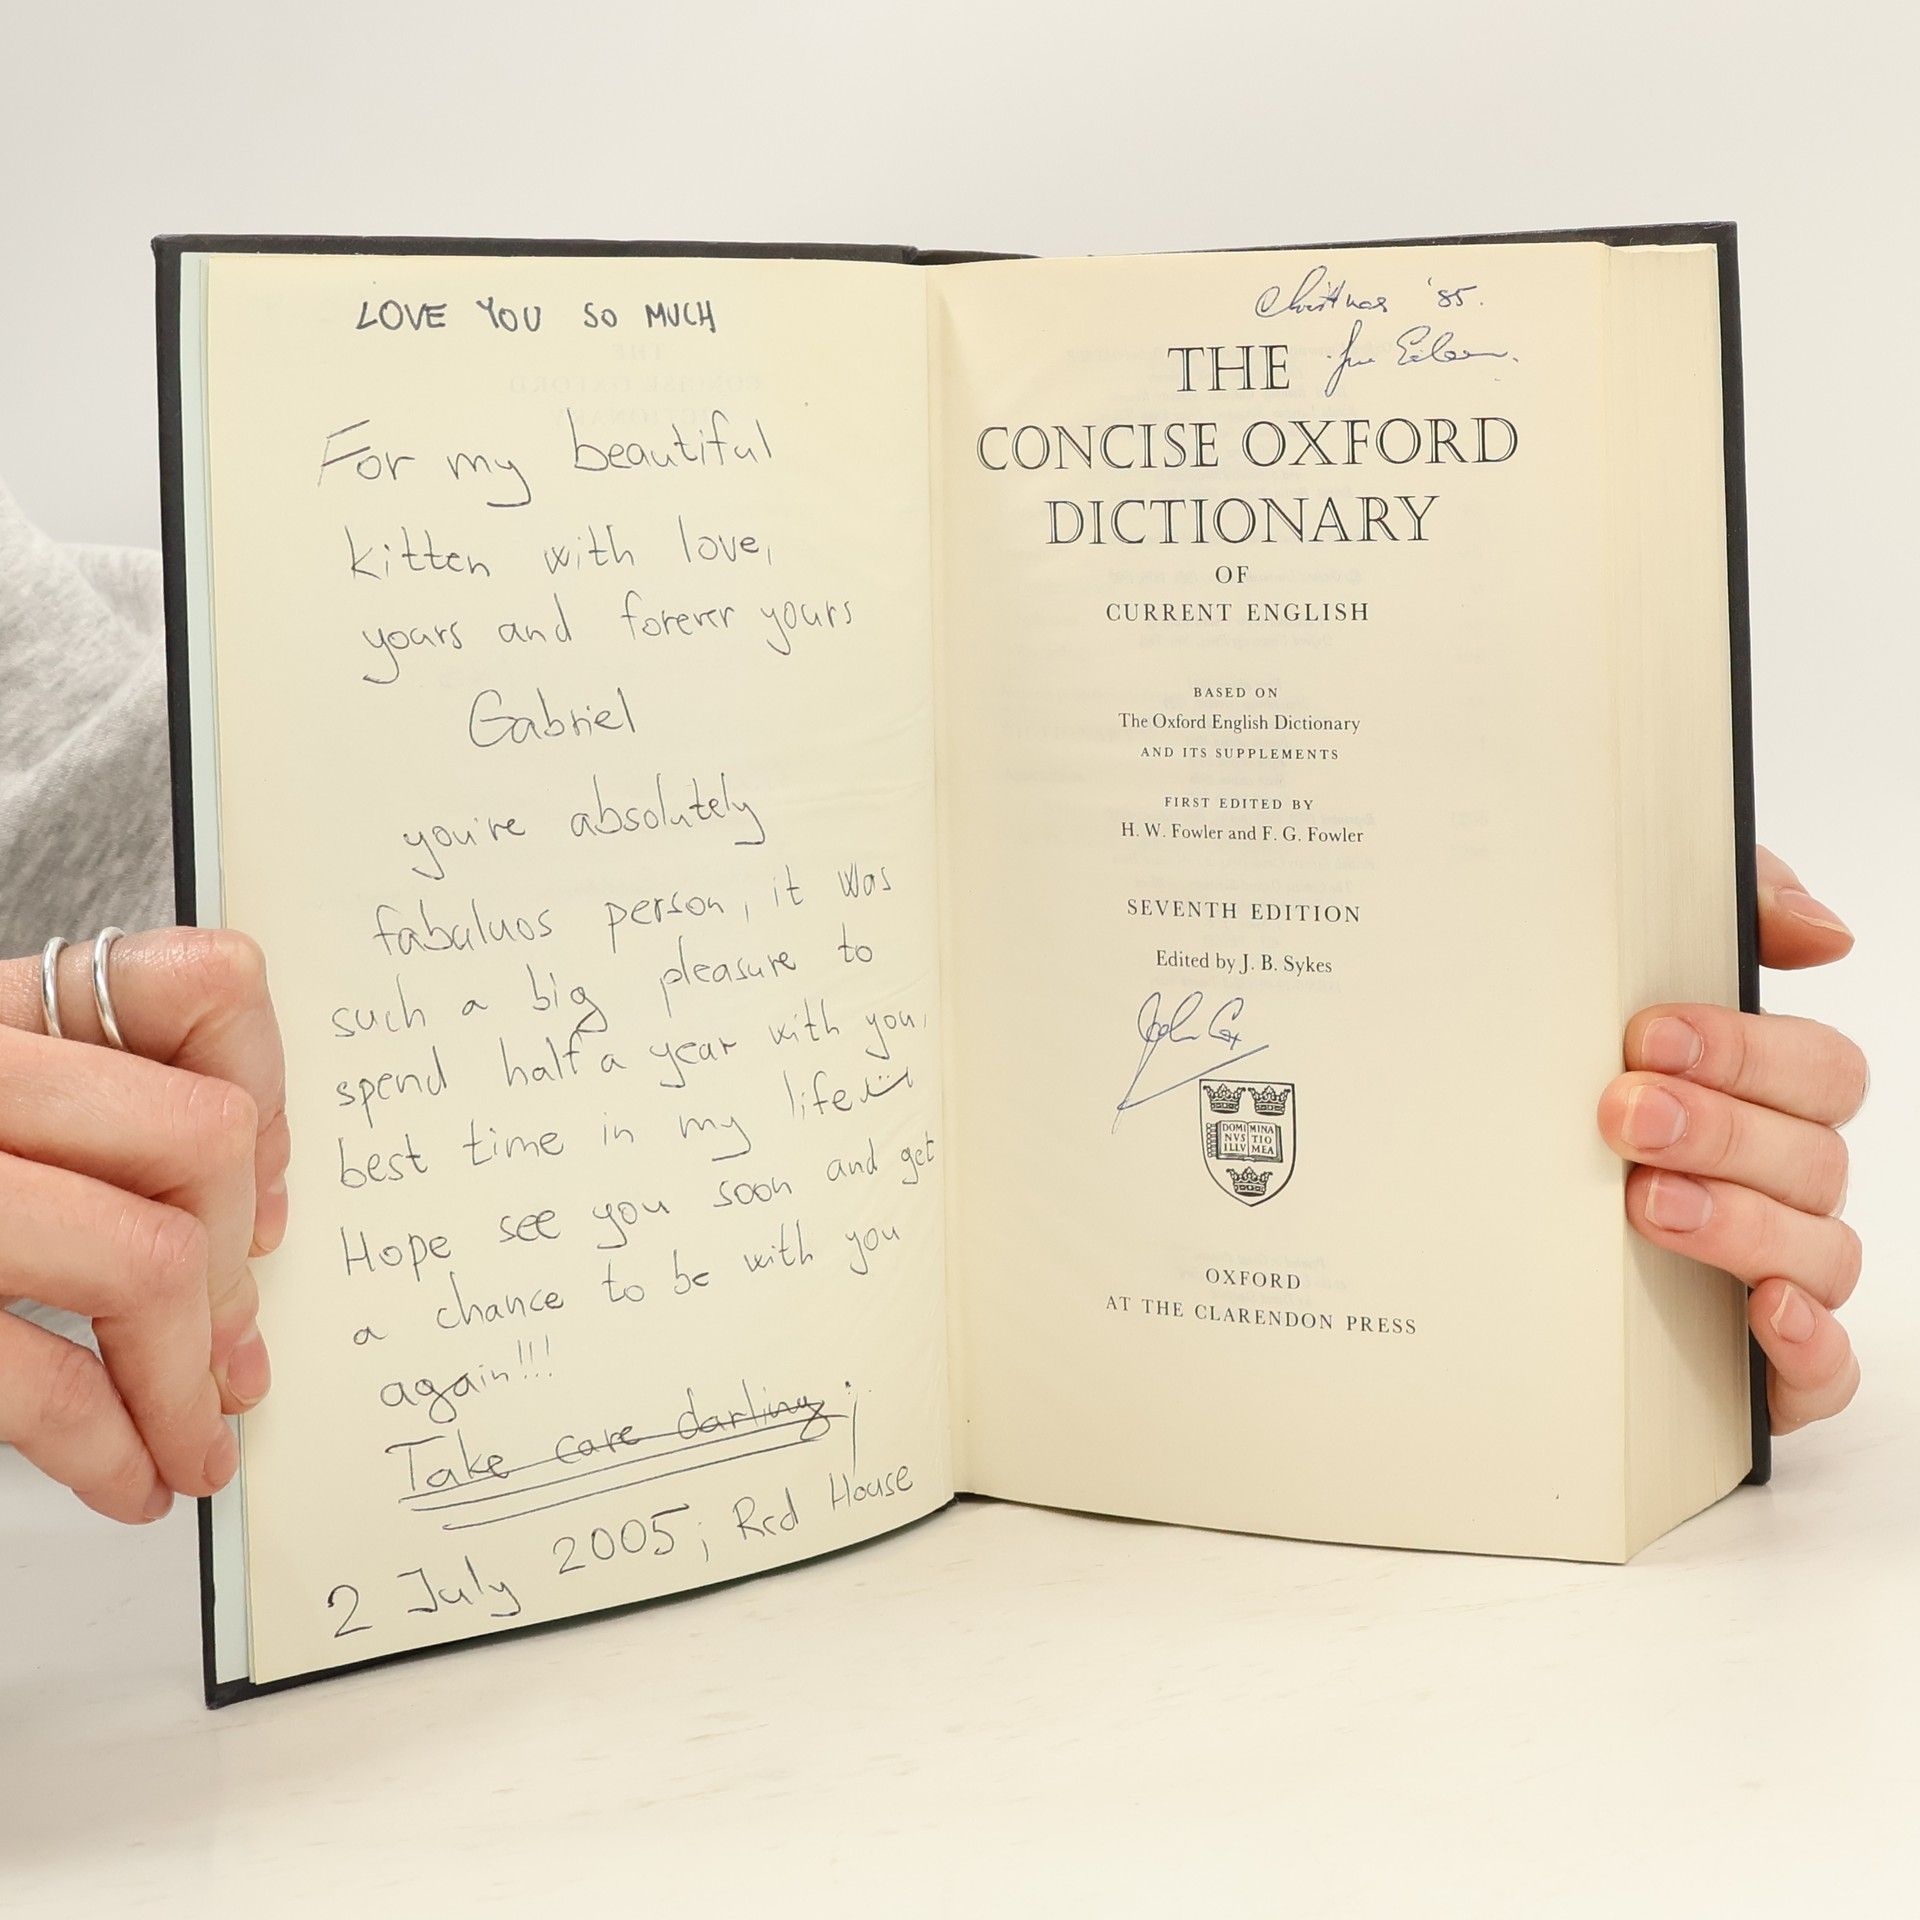 LOVE YOU SO MUCH
For my beautiful
kitten with love,
yours and forever yours
Gabriel
you're absolutely
fabuluos person, it was
such a big pleasure to
spend half a year with you,
best time in my life
Hope see you soon and get
a chance to be with you
again!!!
Take care darling;
2 July 2005; Red House
Christmas '85.
Eileen.
THE
CONCISE OXFORD
DICTIONARY
OF
CURRENT ENGLISH
BASED ON
The Oxford English Dictionary
AND ITS SUPPLEMENTS
FIRST EDITED BY
H. W. Fowler and F. G. Fowler
SEVENTH EDITION
Edited by J. B. Sykes
John Cox
DOMI MINA
NVS TIO
ILLV MEA
OXFORD
AT THE CLARENDON PRESS